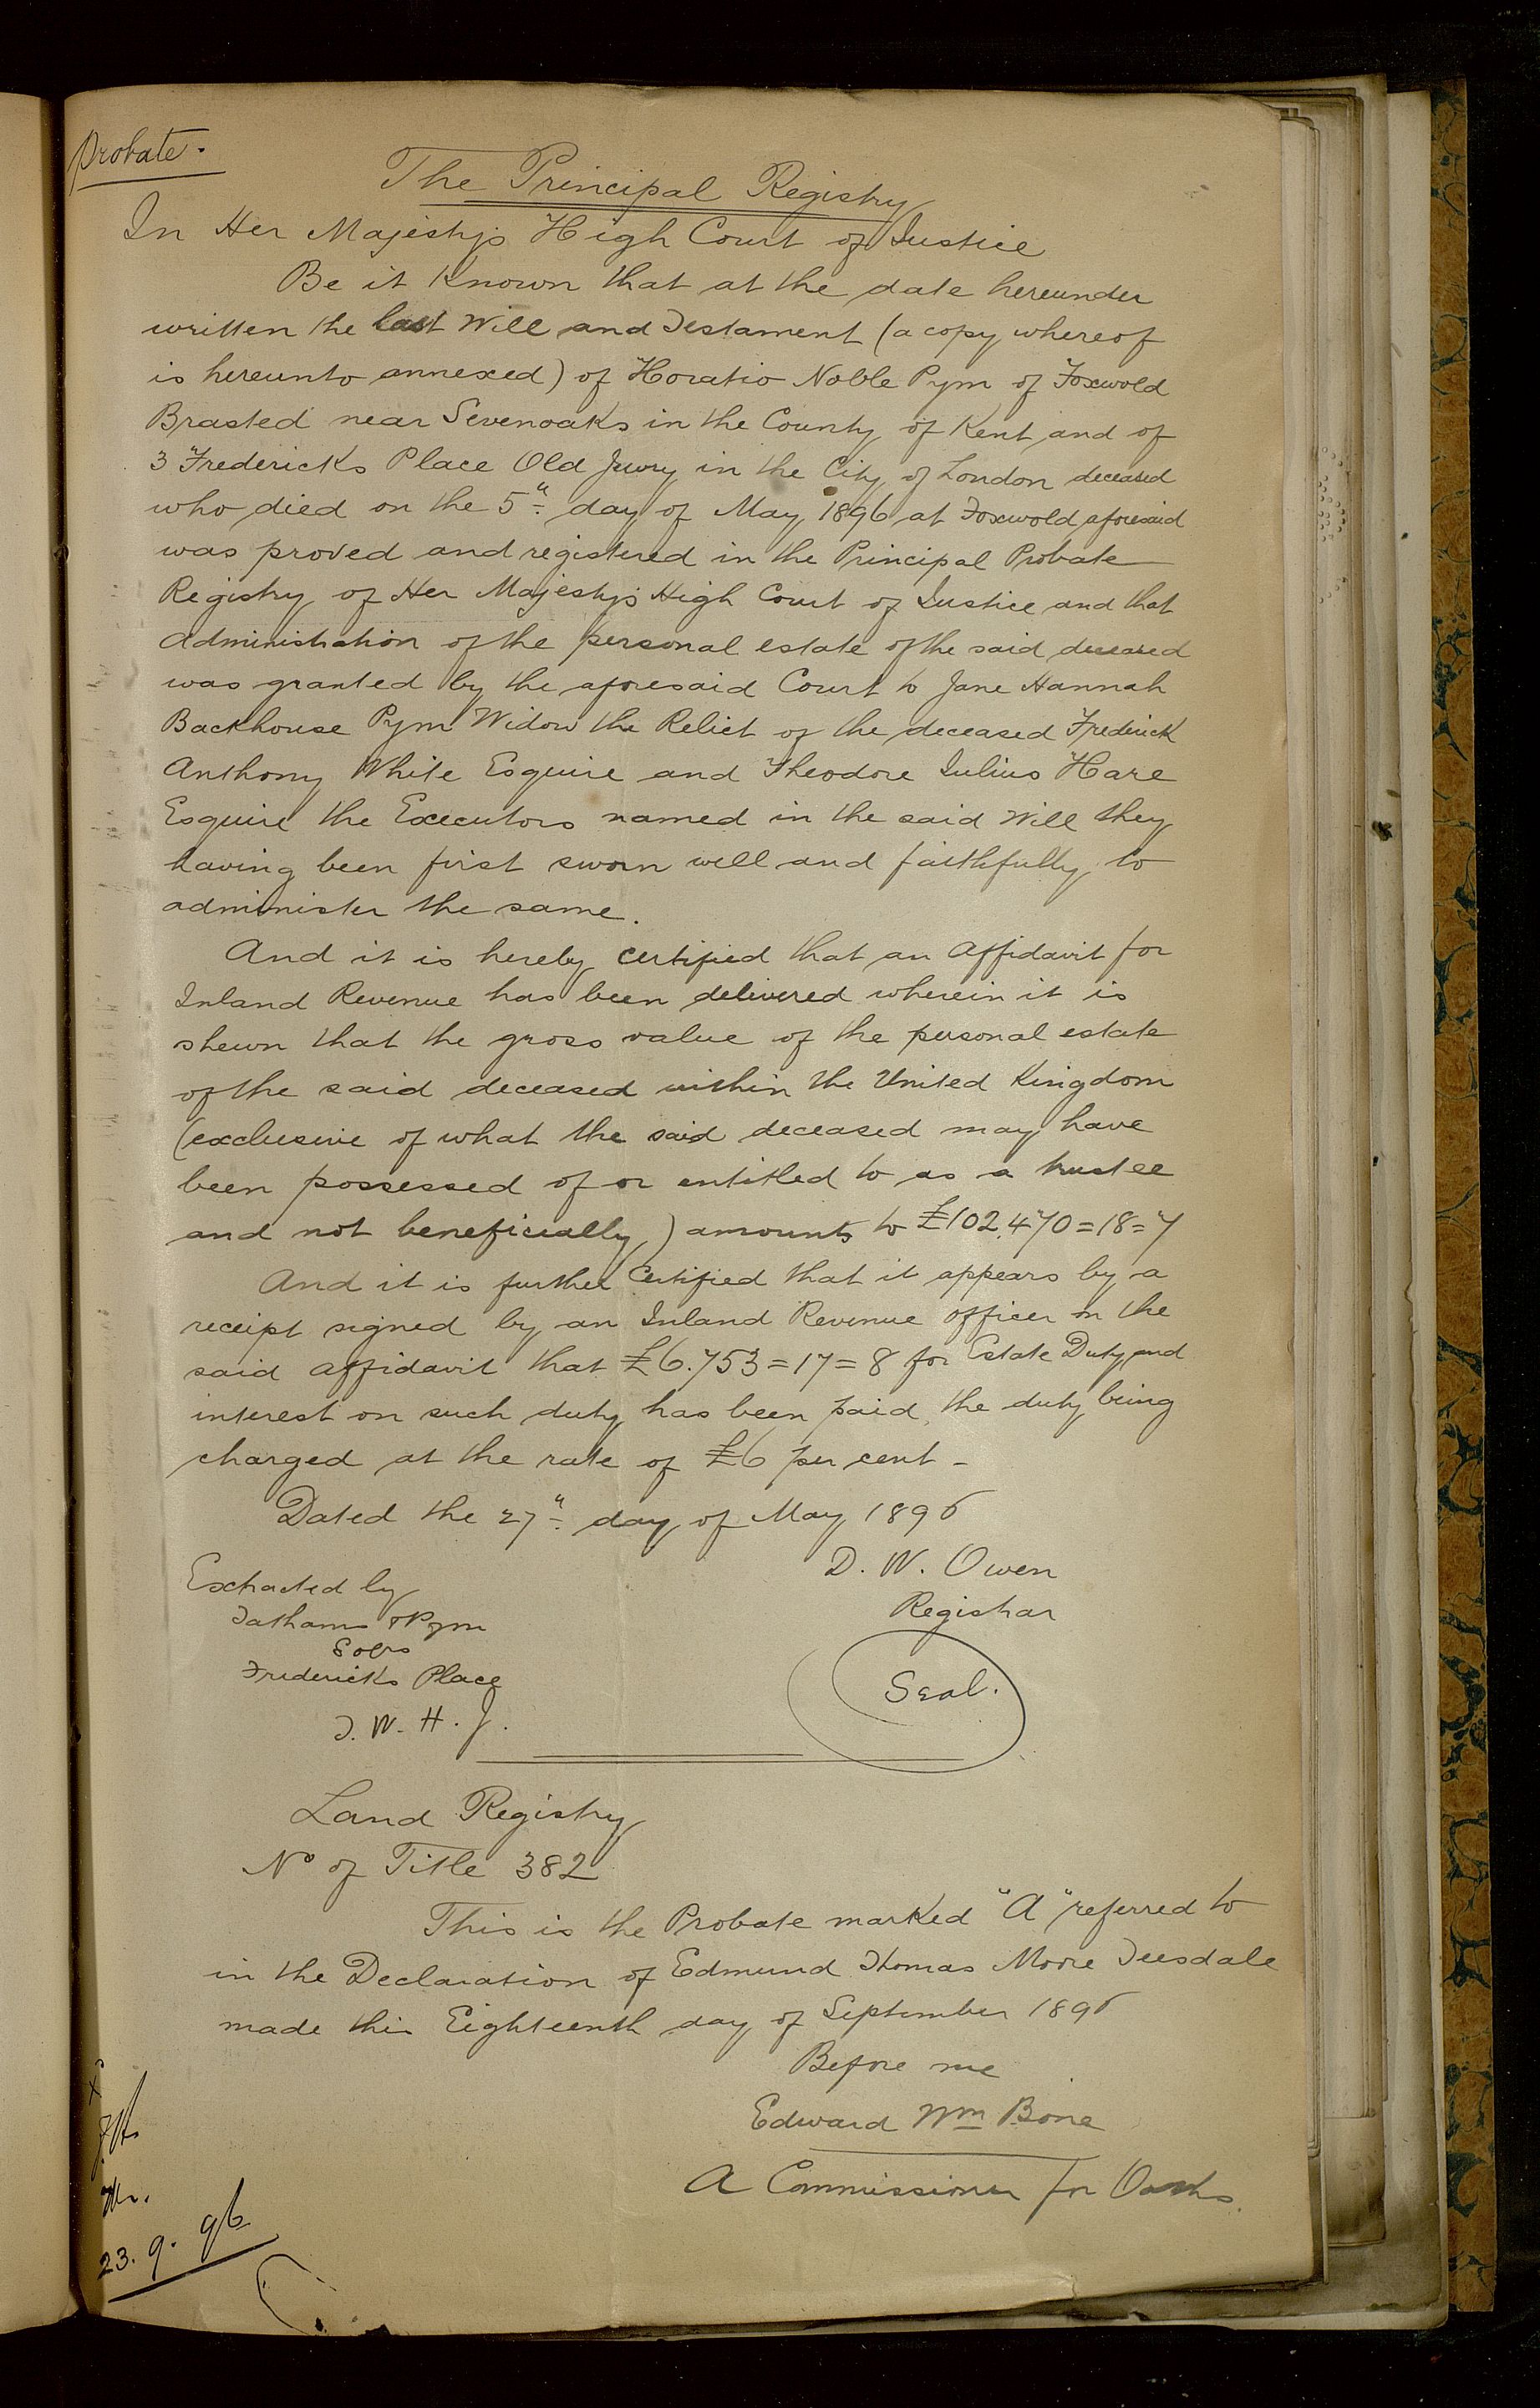 Probate.
The Principal Registry
In Her Majesty's High Court of Justice
Be it Known that at the date hereunder
written the last Will and Testament (a copy whereof
is hereunto annexed) of Horatio Noble Pym of Foxwold
Brasted near Sevenoaks in the County of Kent and of
3 Fredericks Place Old Jewry in the City of London deceased
who died on the 5" day of May 1896 at Foxwold aforesaid
was proved and registered in the Principal Probate
Registry of Her Majesty's High Court of Justice and that
administration of the personal estate of the said deceased
was granted by the aforesaid Court to Jane Hannah
Backhouse Pym Widow the Relict of the deceased Frederick
Anthony White Esquire and Theodore Julius Hare
Esquire the Executors named in the said Will they
having been first sworn well and faithfully to
administer the same.
And it is hereby certified that an Affidavit for
Inland Revenue has been delivered wherein it is
shewn that the gross value of the personal estate
of the said deceased within the United Kingdom
(exclusive of what the said deceased may have
been possessed of or entitled to as a trustee
and not beneficially) amounts to £102,470=18=7
And it is further Certified that it appears by a
receipt signed by an Inland Revenue officer on the
said affidavit that £6.753=17=8 for Estate Duty and
interest on such duty has been paid, the duty being
charged at the rate of £6 per cent -
Dated the 27" day of May 1896
D. W. Owen
Registrar
Extracted by
Tathams & Pym
Solrs
Fredericks Place
J. W. H. J.
Seal.
Land Registry
No of Title 382
This is the Probate marked "A" referred to
in the Declaration of Edmund Thomas Moore Teesdale
made this Eighteenth day of September 1896
Before me
Edward Wm Bone
A Commissioner for Oaths.
23. 9. 96